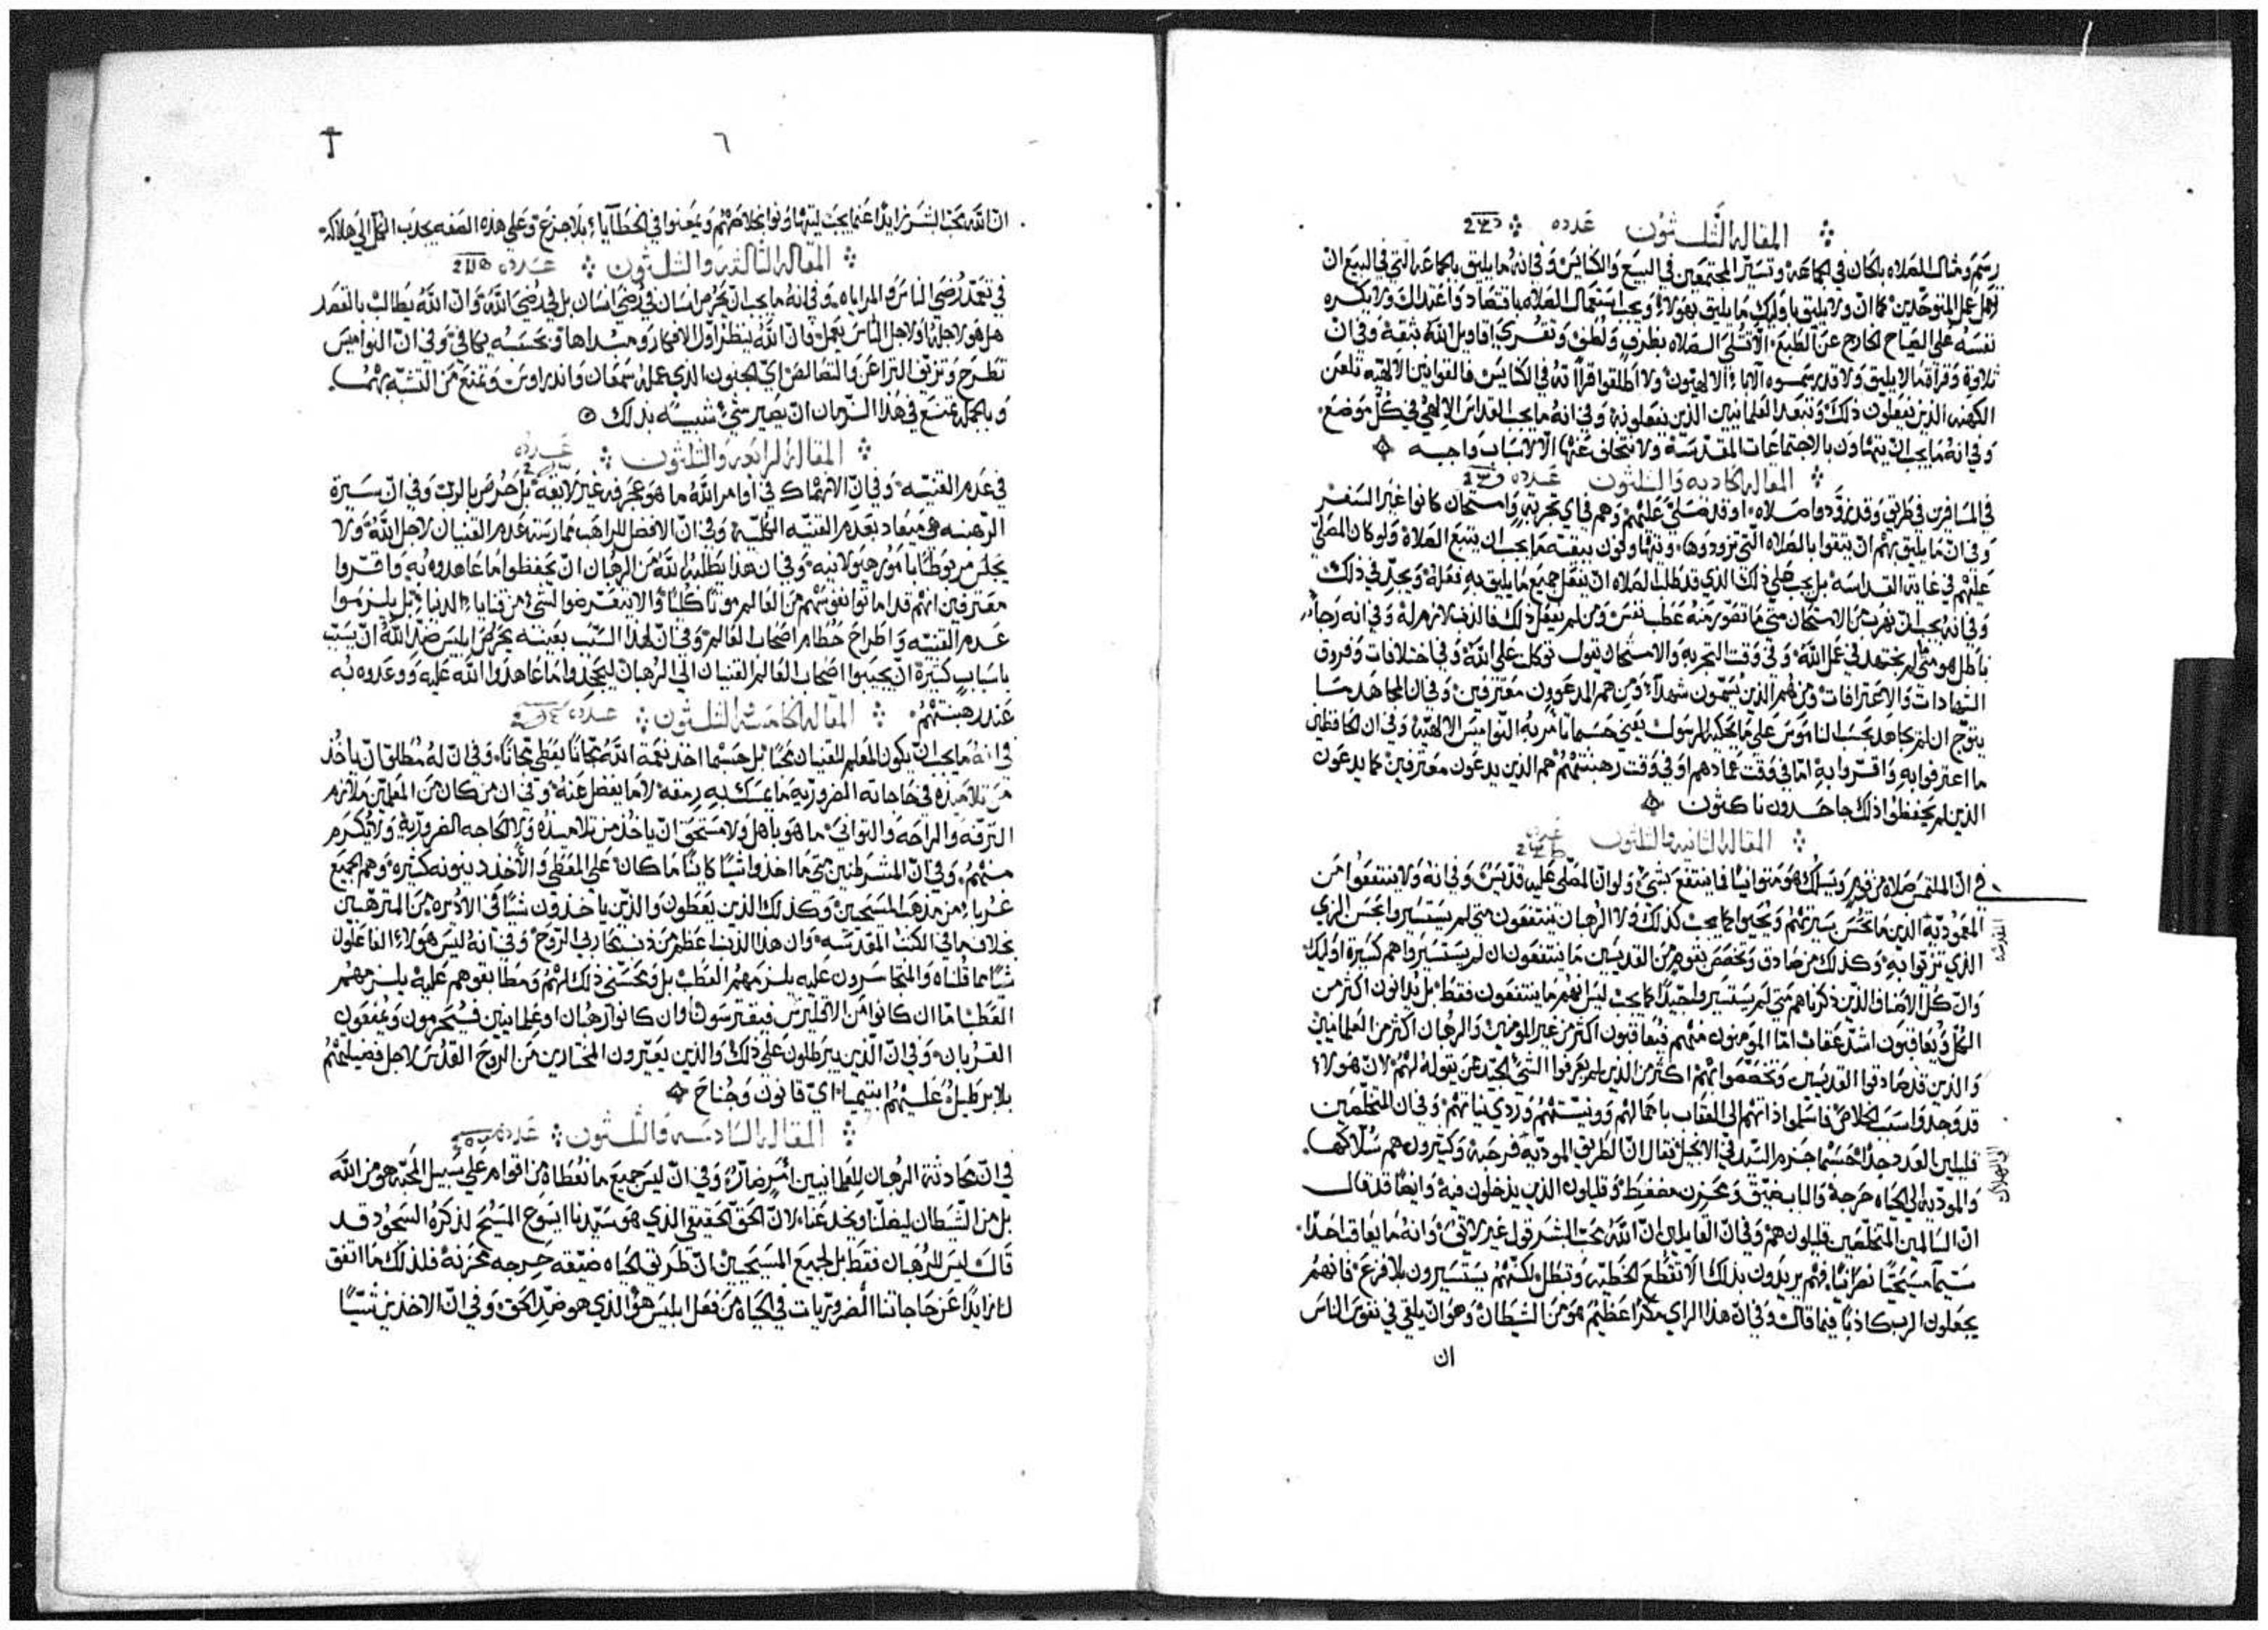 المقاله الثلثون عدده
رسم ومثال للصلاه بامكان في الجماعه وتسير المجتمعين في البيع والكنائس وفي انه ما يليق بالجماعه التي في البيع ان
تعمل عمل المتوحدين كما ان ولا يليق باوليك ما يليق بهولاء ويجب استعمال الصلاه باقتصاد واعتدال ولا يكره
نفسه على الصياح الخارج عن الطبع الا تتلى الصلاه بظرف ولطف وتقرى اقاويل الله بثقة وفي ان
تلاوة وقراة ما لا يليق ولا قد رسموه الاباء الالهيون ولا اطلقوا قراته في الكنايس فالقوانين الالهيه تلعن
الكهنه الذين يفعلون ذلك وتبعد العلمانيين الذين يفعلونه وفي انه ما يجب القداس الالهي في كل موضع
وفي انه ما يجب ان يتهاون بالاجتماعات المقدسة ولا يتخلف عنها الا لاسباب واجبه
المقاله الحاديه والثلثون عدده
في المسافرين في طريق وقد تزودوا صلاه او قد صلي عليهم وهم في اي تجربة وامتحان كانوا غير السفر
وفي ان ما يليق بهم ان يثقوا بالصلاه التي تزودوها ويتهاونون بثقة ما يجب ان يتبع الصلاة ولو كان المصلي
عليهم في غاية القداسه بل يجب على ذلك الذي قد طلب الصلاه ان يفعل جميع ما يليق به فعله ويجد في ذلك
وفي انه يجب ان يهرب من الامتحان متى ما تصور منه عطب نفس ومن لم يفعل ذلك فالذنب لازم له وفي انه رجاء
باطل هو متى لم يجتهد في عمل الله وفي وقت التجربه والامتحان يقول توكلت على الله وفي اختلافات وفروق
الشهادات والاعترافات ومن هم الذين يسمون شهداء ومن هم المدعوون معترفين وفي ان المجاهد ما
يتوج ان لم يجاهد بحسب الناموس على ما يحكيه الرسول يعني حسبما تامر به النواميس الالهيه وفي ان الحافظين
ما اعترفوا به واقروا به اما في وقت عمادهم او في وقت رهبنتهم هم الذين يدعون معترفين كما يدعون
الذين لم يحفظوا ذلك جاحدون ناكثون
المقاله الثانيه والثلثون عدده
في ان الملتمس صلاه من قوم ويسلك هو متوانيا فما ينتفع بشي ولو ان المصلي عليه قديس وفي انه ولا ينتفعوا من
المعموديه الذين ما تحسن سيرتهم ويحيوا كما يجب كذلك ولا الرهبان ينتفعون متى لم يستسيروا بحسن الزي
المقدسه
الذي تزيوا به وكذلك من صادق وتخصص بقوم من القديسين ما ينتفعون ان لم يستسيروا هم كسيرة اوليك
وان كل الاصناف الذين ذكرناهم متى لم يستسيروا جيدا كما يجب ليس انهم ما ينتفعون فقط بل يدانون اكثر من
الكل ويعاقبون اشد عقاب اما المومنون منهم فيعاقبون اكثر من غير المومنين والرهبان اكثر من العلمانيين
والذين قد صادقوا القديسين وتخصصوا بهم اكثر من الذين لم يعرفوا الشي الجيد عمن يقوله لهم لان هولاء
قد وجدوا سبب الخلاص فاسلموا ذاتهم الى العقاب باعمالهم وونيتهم وردي نياتهم وفي ان المتخلصين
قليلين العدد جدا حسبما جزم السيد في الانجيل فقال ان الطريق الموديه فرحبة وكثيرون هم سلاكها
الى الهلاك
والموديه الى الحياه حرجة والباب ضيق ومحزن مضغط وقليلون الذين يدخلون فيه وايضا قد قال
ان السالمين المتخلصين قليلون هم وفي ان القايلين ان الله يحب البشر قول غير لايق وانه ما يعاقب احدا
سيما مسيحيا نصرانيا فهم يريدون بذلك الا تنقطع الخطيه وتطل لكنهم يستسيرون بلا فزع فانهم
يجعلون الرب كاذبا فيما قال وفي ان هذا الراي مكرا عظيم هو من الشيطان وهو ان يلقي في نفوس الناس
ان
٦
ان الله يحب البشر زايدا عما يجب ليتهاونوا بخلاصهم ويمعنوا في الخطايا بلا جزع وعلى هذه الصفه يجذب الكل الى هلاكه
المقاله الثالثه والثلثون عدده
في تعمد رضى الناس والمراياه وفي انه ما يجب ان يحرص انسان في رضى انسان بل في رضى الله وان الله يطالب بالقصد
هل هو لاجله او لاجل الناس يعمل فان الله ينظر اول الافكار ومبداها وبحسبه يكافي وفي ان النواميس
تطرح وتزيف النزاعن والنصالص اي الجنون الذي عمله سمعان واندراوس وتمنع من التشبه بهما
وبالجمله يمتنع في هذا الزمان ان يصير شي شبيه بذلك
المقاله الرابعه والثلثون عدده
في عدم القنيه وفي ان الانهماك في اوامر الله ما هو عجرفيه غير لايقه بل حرص بالرب وفي ان سيرة
الرهبنه هي ميعاد بعدم القنيه الكليه وفي ان الافضل للراهب ممارسته عدم القنيان لاجل الله ولا
يجلس مربوطا بامور هيولانيه وفي ان هذا يطلبه الله من الرهبان ان يحفظوا ما عاهدوه به واقروا
معترفين انهم قد اماتوا نفوسهم من العالم موتا كليا والا يتعرضوا لشي من قنايا الدنيا بل يلزموا
عدم القنيه واطراح حطام اصحاب العالم وفي ان لهذا السبب بعينه يحرص ابليس ضد الله ان يسبب
باسباب كثيرة ان يجيبوا اصحاب العالم القنيان الى الرهبان ليجحدوا ما عاهدوا الله عليه ووعدوه به
عند رهبنتهم
المقاله الخامسه والثلثون عدده
في انه ما يجب ان يكون المعلم للقنيان محبا بل حسبما اخذ نعمة الله مجانا يعطي مجانا وفي ان له مطلق ان ياخذ
من تلاميذه في حاجاته الضروريه ما يمسك به رمقه لا ما يفضل عنه وفي ان من كان من المعلمين ملازم
الترفه والراحه والتواني ما هو باهل ولا مستحق ان ياخذ من تلاميذه ولا الحاجه الضروريه ولا يكرم
منهم وفي ان المشرطنين متى ما اخذوا شيا كاينا ما كان على المعطي والاخذ دينونه كثيره وهم الجميع
غربا من مذهب المسيحيين وكذلك الذين يعطون والذين ياخذون شيا في الاديره من المترهبين
بخلاف ما في الكتب المقدسه وان هذا الذنب اعظم من ذنب محاربي الروح وفي انه ليس هولاء الفاعلون
شيا مما قلناه والمتجاسرون عليه يلزمهم العطب بل ومحسني ذلك لهم ومطابقوهم عليه يلزمهم
العطب اما ان كانوا من الاقليرس فيقترسون وان كانوا رهبان او علمانيين فيحرمون ويمنعون
القربان وفي ان الذين يبرطلون على ذلك والذين يعيرون المختارين من الروح القدس لاجل فضيلتهم
بلا برطيل عليهم ابتيميا اي قانون وجناح
المقاله السادسه والثلثون عدده
في ان محادثة الرهبان للعلمانيين امر ضارة وفي ان ليس جميع ما نعطاه من اقوام على سبيل المحبة هو من الله
بل من الشيطان ليضلنا ويخدعنا لان الحق الحقيقي الذي هو سيدنا ايسوع المسيح لذكره السجود قد
قال ليس للرهبان فقط بل لجميع المسيحيين ان طريق الحياه ضيقه حرجه محزنة فلذلك ما اتفق
لنا زايدا عن حاجاتنا الضروريات في الحياه من فعل ابليس هو الذي هو ضد الحق وفي ان الاخذين شيا